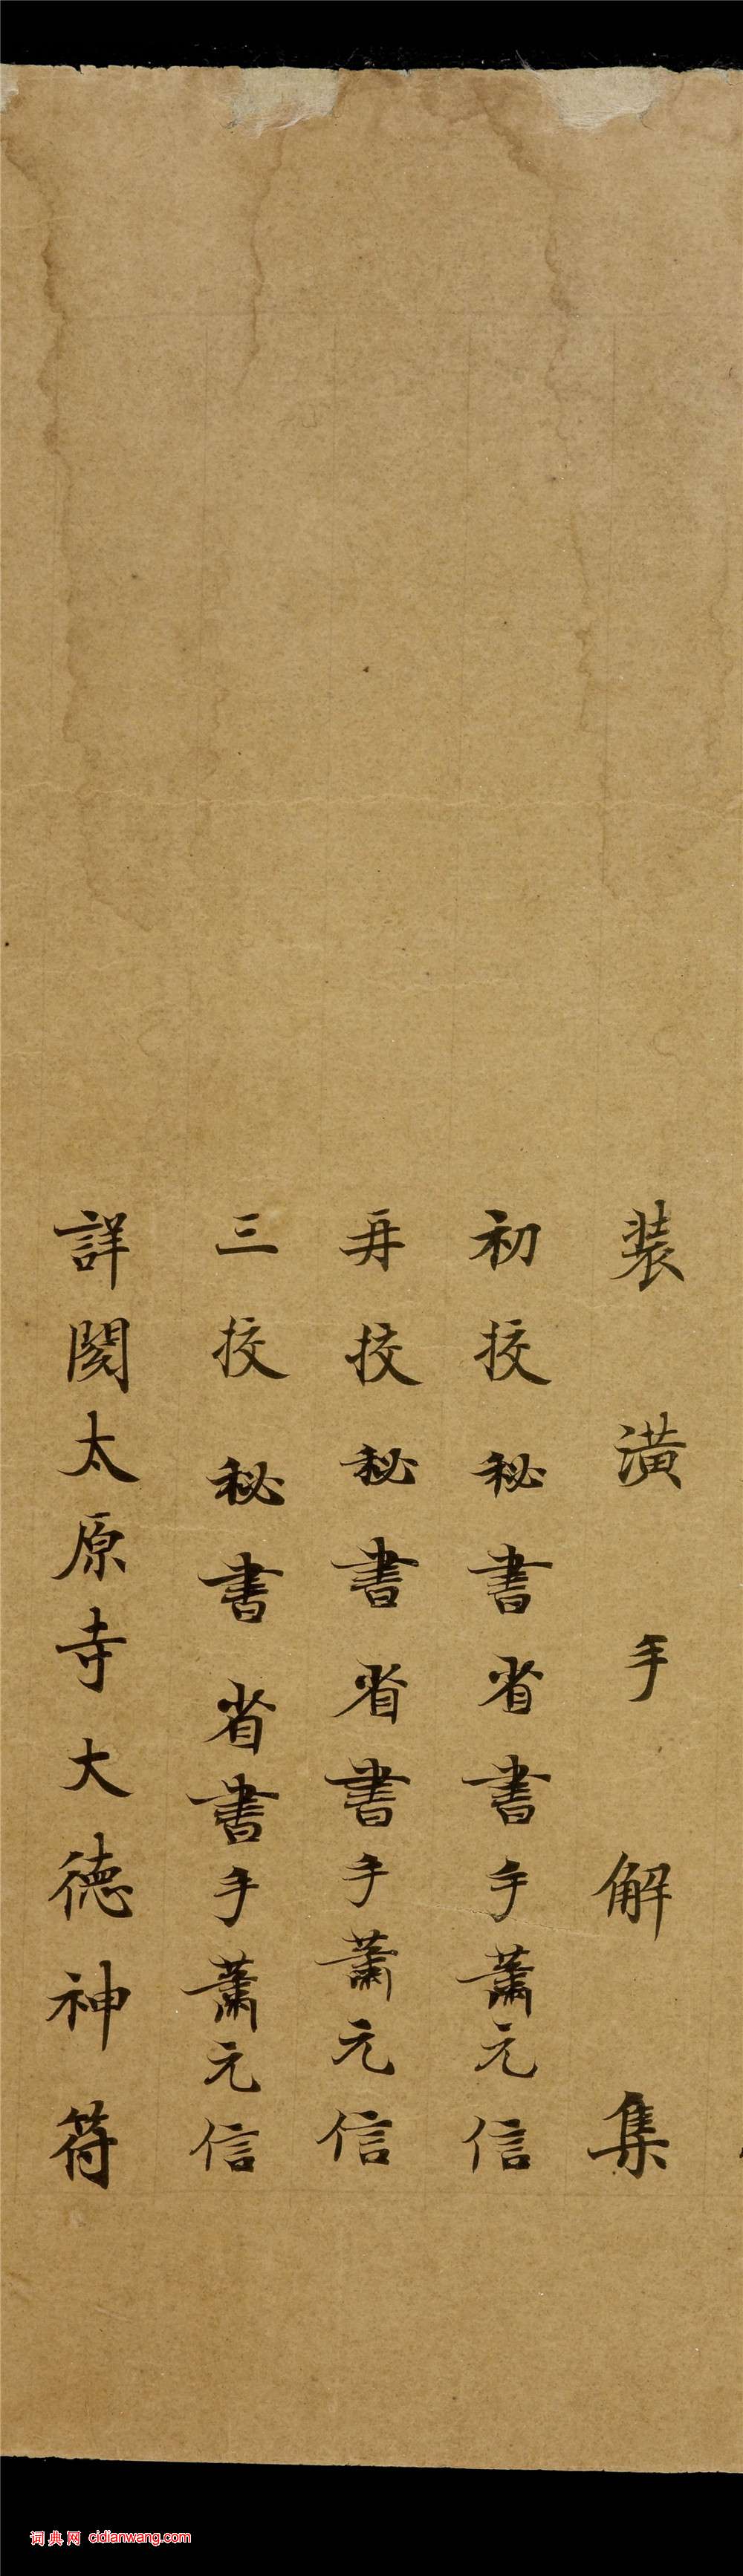 装潢手解集
初挍秘書省書手蕭元信
再挍秘書省書手蕭元信
三挍秘書省書手蕭元信
詳閱太原寺大德神符
词典网 cidianwang.com